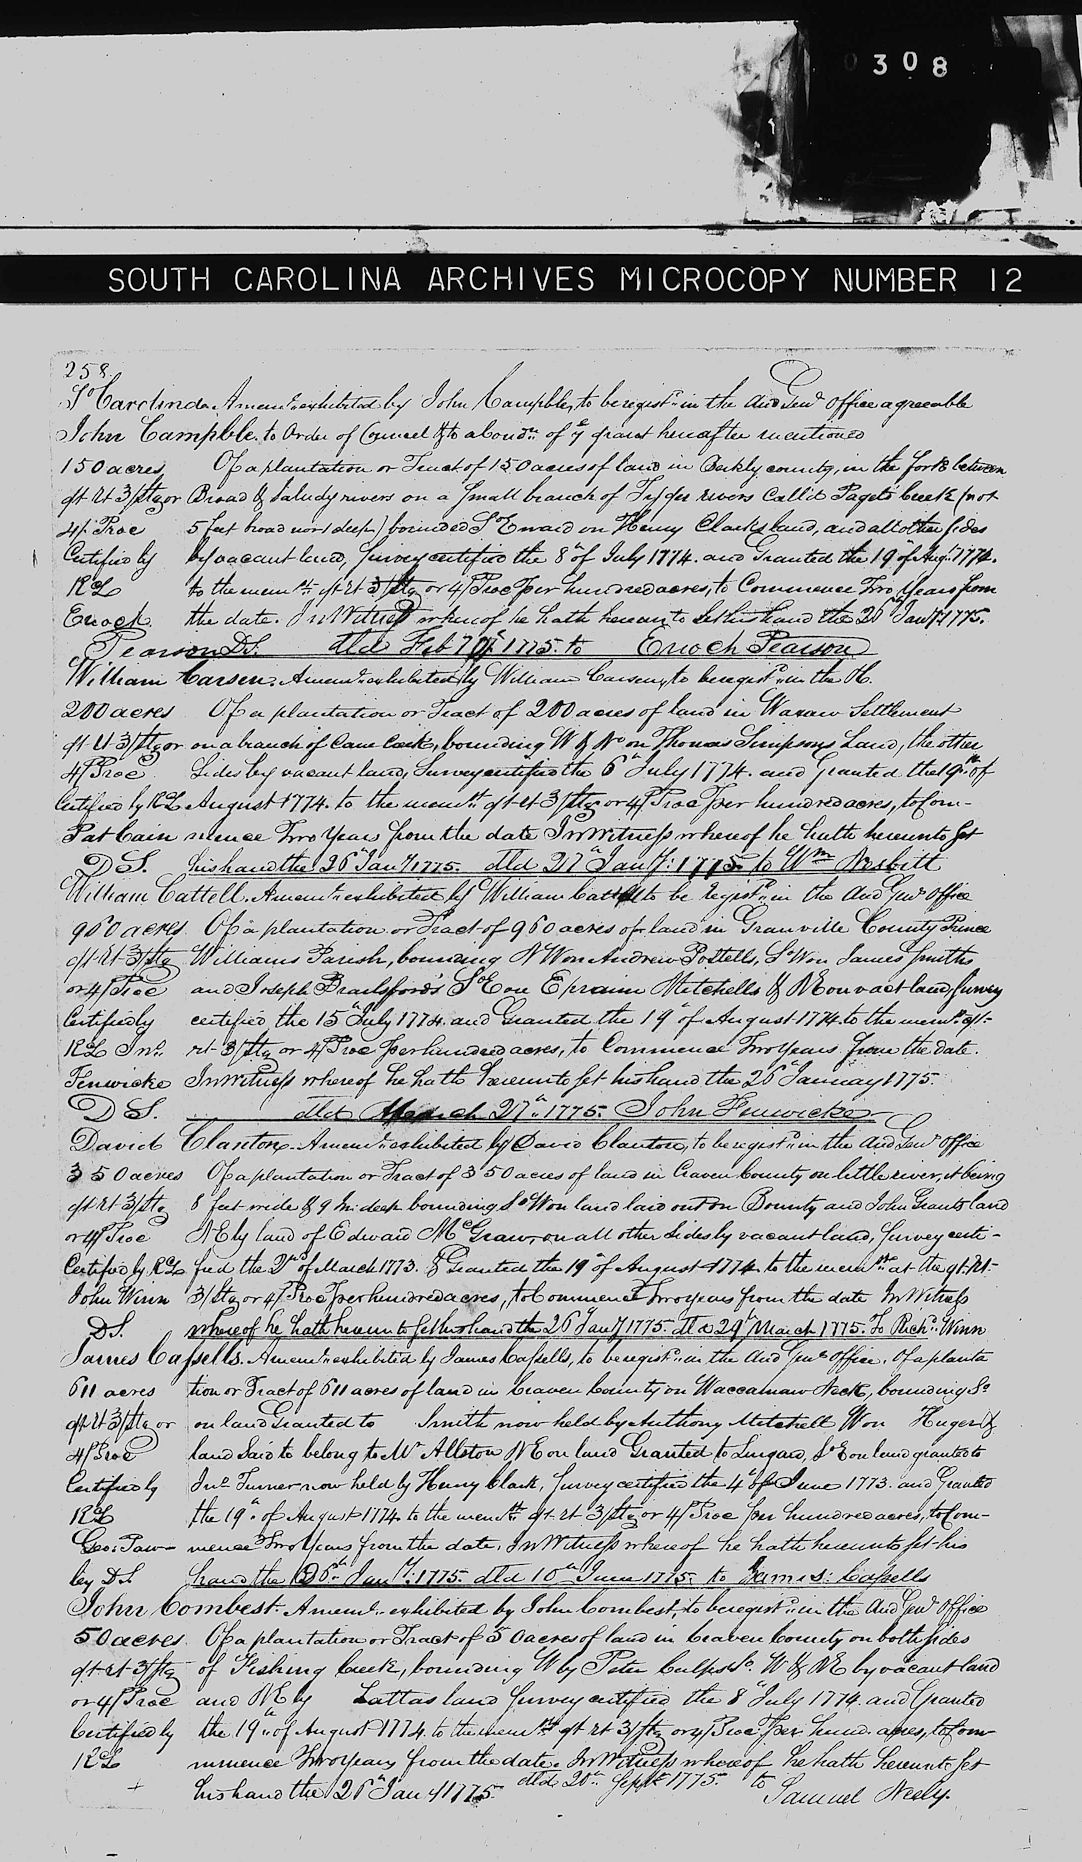 0308
SOUTH CAROLINA ARCHIVES MICROCOPY NUMBER 12
258
So Carolina. A memr. exhibited by John Campble, to be regist.. in the Aud Genl office agreeable
John Campble. to Order of Council & to a Condn. of ye grant hereafter mentioned
150 acres Of a plantation or Tract of 150 acres of land in Berkly county, in the fork between
qt rt 3/Stg or Broad & Saludy rivers on a Small branch of Tyger rivers Call'd Pagets Creek (not
4/ Proc 5 feet broad nor 1 deep) bounded S E ward on Henry Clarks land, and all other sides
Certified by by vacant land, Survey certified the 8th of July 1774. and Granted the 19th of Augt. 1774.
RL to the memr.. qt rt 3/Stg or 4/ Proc per hundred acres, to Commence Two Years from
Enoch the date. In Witness whereof he hath hereunto set his hand the 26th Jany. 1775.
Pearson DS. dld Feb 7th 1775. to Enoch Pearson
William Carsen. A memr. exhibited by William Carsen, to be regist.. in the &c.
200 acres Of a plantation or Tract of 200 acres of land in Waxaw Settlement
qt rt 3/Stg or on a branch of Cane Creek, bounding W & No on Thomas Simpsons Land, the other
4/ Proc Sides by vacant land, Survey certified the 6th July 1774. and Granted the 19th. of
Certified by RL August 1774. to the memr.. qt rt 3/Stg or 4/ Proc per hundred acres, to Com-
Pat Cain mence Two Years from the date In Witness whereof he hath hereunto Set
DS. his hand the 26th Jany 1775. dld 27th Jany. 1775 to Wm Nesbitt
William Cattell. A memr. exhibited by William Cattell to be regist.. in the Aud Genl office
960 acres Of a plantation or Tract of 960 acres of land in Granville County Prince
qt rt 3/Stg Williams Parish, bounding N W on Andrew Postells, So W on James Smiths
or 4/ Proc and Joseph Brailsford's So E on Ephraim Mitchells & N E on vact land, Survey
Certified by certified the 15th July 1774. and Granted the 19th of August 1774 to the memr.. qt
RL Jno. rt 3/Stg or 4/ Proc per hundred acres, to Commence Two Years from the date.
Fenwicke In Witness whereof he hath hereunto Set his hand the 26th January 1775.
DS. dld March 27th. 1775. John Fenwicke
David Clanton. A memr. exhibited by David Clanton, to be regist.. in the Aud Genl office
350 acres Of a plantation or Tract of 350 acres of land in Craven County on little river, it being
qt rt 3/Stg 8 feet wide & 9 In: deep bounding So W on land laid out on Bounty and John Grants land
or 4/ Proc N E by land of Edward McGraw, on all other Sides by vacant land, Survey certi-
Certified by RL fied the 2nd of March 1773. & Granted the 19th of August 1774 to the memr.. at the qt. rt.
John Winn 3/Stg or 4/ Proc per hundred acres, to Commence Two years from the date In Witness
DS. whereof he hath hereunto set his hand the 26th Jany 1775. dld 29th March 1775. To Richd.. Winn
James Cassells. A memr. exhibited by James Cassells, to be regist.. in the Aud Genl office. Of a planta
611 acres tion or Tract of 611 acres of land in Craven County on Waccamaw Neck, bounding So
qt rt 3/Stg or on land Granted to Smith now held by Anthony Mitchell W on Huger &
4/ Proc land Said to belong to Mr Allston N E on land Granted to Lingard, So E on land granted to
Certified by Jno Turner now held by Henry Clark, Survey certified the 4th of June 1773. and Granted
RL the 19th. of August 1774 to the memr.. qt rt 3/Stg or 4/ Proc per hundred acres, to Com-
Geo: Paw- mence Two Years from the date. In Witness whereof he hath hereunto Set his
ley DS hand the 26th. Jany. 1775. dld 10th June 1775. to James: Cassells
John Combest. A memr.. exhibited by John Combest, to be regist.. in the Aud Genl office
50 acres. Of a plantation or Tract of 50 acres of land in Craven County on both sides
qt rt 3/Stg of Fishing Creek, bounding W by Peter Culps So. W & N E by vacant land
or 4/ Proc and N E by Lattas land Survey certified the 8th July 1774. and Granted
Certified by the 19th. of August 1774 to the memr.. qt rt 3/Stg or 4/ Proc per hund. acres, to Com-
RL mence Two years from the date. In Witness whereof he hath hereunto Set
his hand the 26th Jany 1775. dld 20th. Septr 1775. to Samuel Neely.